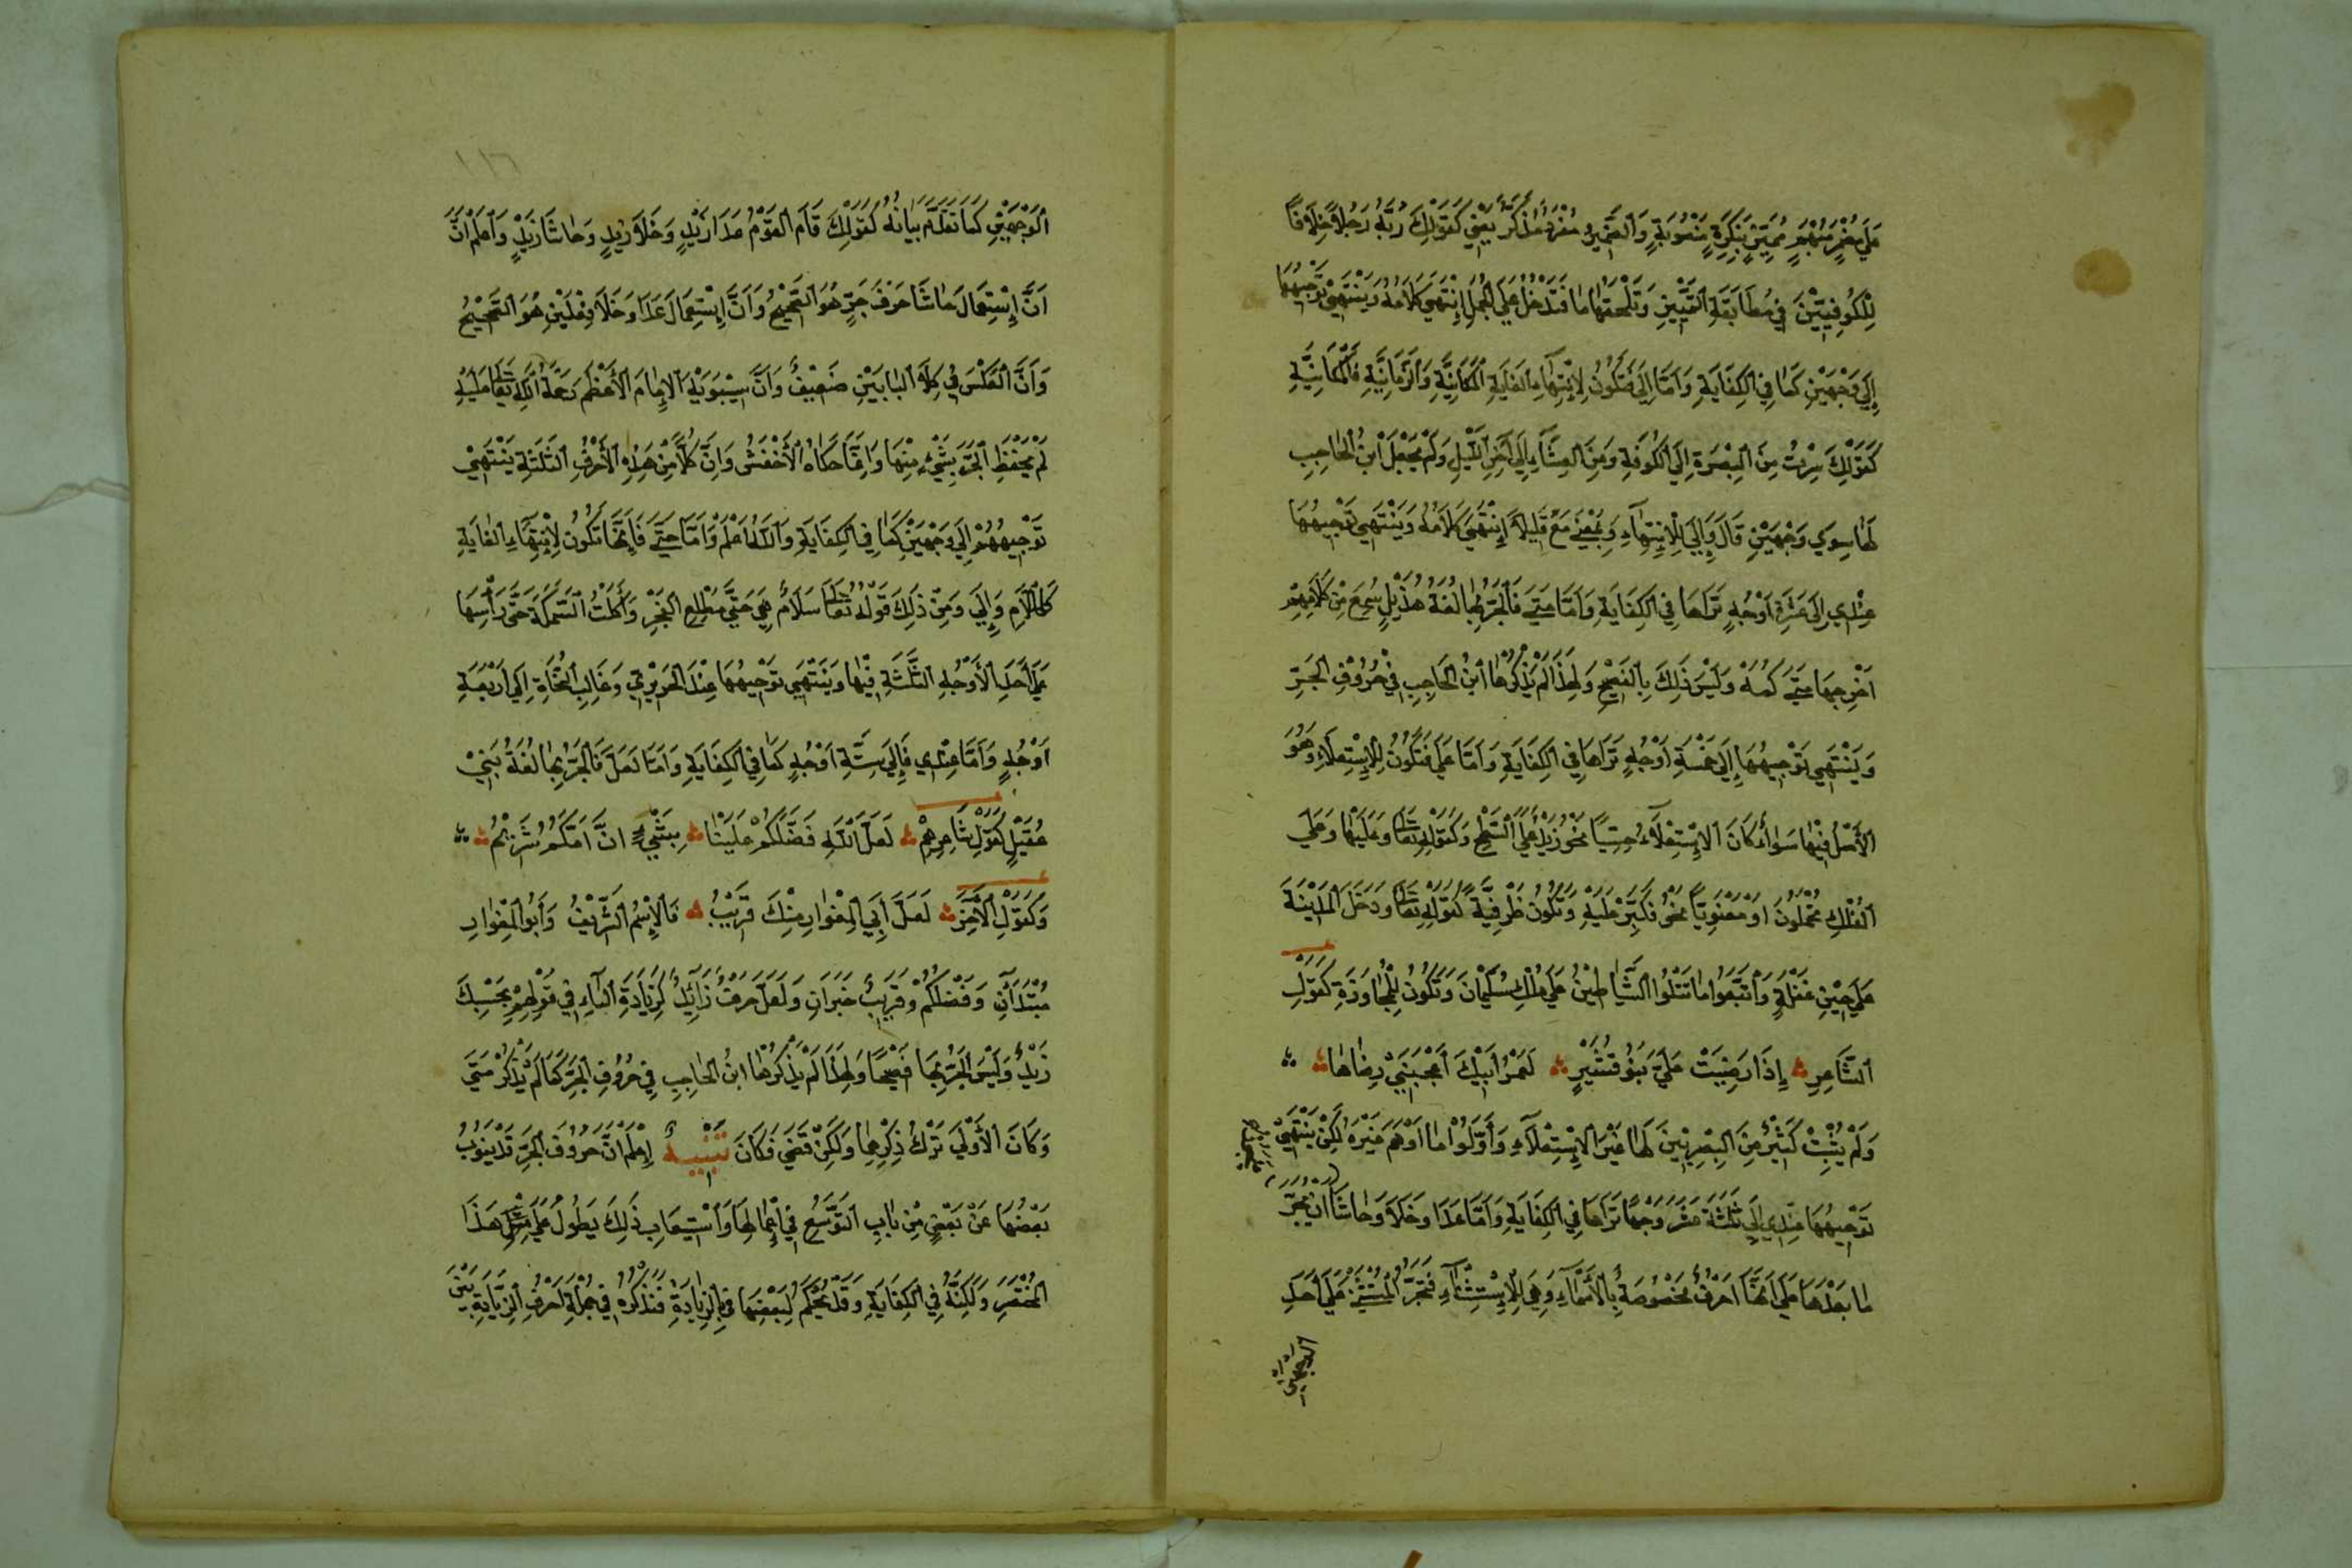 عَلَى مُضْمَرٍ مُبْهَمٍ مُمَيَّزٍ بِنَكِرَةٍ مَنْصُوبَةٍ وَالضَّمِيرُ مُفْرَدٌ مُذَكَّرٌ يَعْنِي كَقَوْلِكَ رُبَّهُ رَجُلًا خِلَافًا
لِلْكُوفِيِّينَ فِي مُطَابَقَةِ التَّمْيِيزِ وَتَلْحَقُهَا مَا فَتَدْخُلُ عَلَى الْجُمَلِ إِنْتَهَى كَلَامُهُ وَيَنْتَهِي تَوْجِيهُهَا
إِلَى وَجْهَيْنِ كَمَا فِي الْكِفَايَةِ وَأَمَّا إِلَى فَتَكُونُ لِانْتِهَاءِ الْغَايَةِ الْمَكَانِيَّةِ وَالزَّمَانِيَّةِ فَالْمَكَانِيَّةِ
كَقَوْلِكَ سِرْتُ مِنَ الْبَصْرَةِ إِلَى الْكُوفَةِ وَمِنَ الْعِشَاءِ إِلَى آخِرِ اللَّيْلِ وَلَمْ يَجْعَلْ ابْنُ الْحَاجِبِ
لَهَا سِوَى وَجْهَيْنِ قَالَ وَإِلَى لِلْانْتِهَاءِ وَبِمَعْنَى مَعْ قَلِيلًا إِنْتَهَى كَلَامُهُ وَيَنْتَهِي تَوْجِيهُهَا
عِنْدِي إِلَى عَشَرَةِ أَوْجُهٍ تَرَاهَا فِي الْكِفَايَةِ وَأَمَّا مَتَى فَالْجَرُّ بِهَا لُغَةُ هُذَيْلٍ سُمِعَ مِنْ كَلَامِهِمْ
أَخْرَجَهَا مَتَى كُمِّهْ وَلَيْسَ ذَلِكَ بِالْفَصِيحِ وَلِهَذَا لَمْ يَذْكُرْهَا ابْنُ الْحَاجِبِ فِي حُرُوفِ الْجَرِّ
وَيَنْتَهِي تَوْجِيهُهَا إِلَى خَمْسَةِ أَوْجُهٍ تَرَاهَا فِي الْكِفَايَةِ وَأَمَّا عَلَى فَتَكُونُ لِلْإِسْتِعْلَاءِ وَهُوَ
الْأَصْلُ فِيهَا سَوَاءٌ كَانَ الْإِسْتِعْلَاءُ حِسِّيًا نَحْوُ زَيْدٌ عَلَى السَّطْحِ وَكَقَوْلِهِ تَعَالَى وَعَلَيْهَا وَعَلَى
الْفُلْكِ تُحْمَلُونَ أَوْ مَعْنَوِيًّا نَحْوُ فَكَبِّرْ عَلَيْهِ وَتَكُونُ ظَرْفِيَّةً كَقَوْلِهِ تَعَالَى وَدَخَلَ الْمَدِينَةَ
عَلَى حِينِ غَفْلَةٍ وَاتَّبَعُوا مَا تَتْلُوا الشَّيَاطِينُ عَلَى مُلْكِ سُلَيْمَانَ وَتَكُونُ لِلْمُجَاوَزَةِ كَقَوْلِ
الشَّاعِرِ إِذَا رَضِيَتْ عَلَيَّ بَنُو قُشَيْرٍ لَعَمْرُ أَبِيكَ أَعْجَبَنِي رِضَاهَا
وَلَمْ يُثْبِتْ كَثِيرٌ مِنَ الْبَصْرِيِّينَ لَهَا غَيْرَ الْإِسْتِعْلَاءِ وَأَوَّلُوا مَا أَوْهَمَ غَيْرَهُ لَكِنْ يَنْتَهِي
تَوْجِيهُهَا عِنْدِي إِلَى ثَلَثَةَ عَشَرَ وَجْهًا تَرَاهَا فِي الْكِفَايَةِ وَأَمَّا عَدَا وَخَلَا وَحَاشَا
مَا بَعْدَهَا عَلَى أَنَّهَا أَحْرُفٌ مَخْصُوصَةٌ بِالْأَسْمَاءِ وَهِيَ لِلْإِسْتِثْنَاءِ فَتَجُرُّ الْمُسْتَثْنَى عَلَى أَحَدِ
الوجهين
١١٦
الْوَجْهَيْنِ كَمَا تَقَدَّمَ بَيَانُهُ كَقَوْلِكَ قَامَ الْقَوْمُ عَدَا زَيْدٍ وَخَلَا زَيْدٍ وَحَاشَا زَيْدٍ وَاعْلَمْ أَنَّ
أَنَّ إِسْتِعْمَالَ حَاشَا حَرْفَ جَرٍّ هُوَ الصَّحِيحُ وَأَنَّ إِسْتِعْمَالَ عَدَا وَخَلَا فِعْلَيْنِ هُوَ الصَّحِيحُ
وَأَنَّ الْعَكْسَ فِي كِلَا الْبَابَيْنِ ضَعِيفٌ وَأَنَّ سِيبَوَيْهِ الْإِمَامَ الْأَعْظَمَ رَحْمَةُ اللَّهِ تَعَالَى عَلَيْهِ
لَمْ يَحْفَظِ الْجَرَّ بِشَيْءٍ مِنْهَا وَإِنَّمَا حَكَاهُ الْأَخْفَشُ وَإِنَّ كُلًّا مِنْ هَذِهِ الْأَحْرُفِ الثَّلَثَةِ يَنْتَهِي
تَوْجِيهُهُ إِلَى وَجْهَيْنِ كَمَا فِي الْكِفَايَةِ وَاللَّهُ أَعْلَمُ وَأَمَّا حَتَّى فَإِنَّهَا تَكُونُ لِانْتِهَاءِ الْغَايَةِ
كَاللَّامِ وَإِلَى وَمِنْ ذَلِكَ قَوْلُهُ تَعَالَى سَلَامٌ هِيَ حَتَّى مَطْلَعِ الْفَجْرِ وَأَكَلْتُ السَّمَكَةَ حَتَّى رَأْسِهَا
عَلَى أَحَدِ الْأَوْجُهِ الثَّلَثَةِ فِيهَا وَيَنْتَهِي تَوْجِيهُهَا عِنْدَ الْحَرِيرِيِّ وَغَالِبِ النُّحَاةِ إِلَى أَرْبَعَةِ
أَوْجُهٍ وَأَمَّا عِنْدِي فَإِلَى سِتَّةِ أَوْجُهٍ كَمَا فِي الْكِفَايَةِ وَأَمَّا لَعَلَّ فَالْجَرُّ بِهَا لُغَةُ بَنِي
عُقَيْلٍ كَقَوْلِ شَاعِرِهِمْ لَعَلَّ اللَّهِ فَضَّلَكُمْ عَلَيْنَا بِشَيْءٍ انَّ أُمَّكُمُ شَرِيمُ
وَكَقَوْلِ الْآخَرِ لَعَلَّ أَبِي الْمِغْوَارِ مِنْكَ قَرِيبُ فَالْإِسْمُ الشَّرِيفُ وَأَبُو الْمِغْوَارِ
مُبْتَدَآنِ وَفَضَّلَكُمْ وَقَرِيبٌ خَبَرَانِ وَلَعَلَّ حَرْفٌ زَائِدٌ كَزِيَادَةِ الْبَاءِ فِي قَوْلِهِمْ بِحَسْبِكَ
زَيْدٌ وَلَيْسَ الْجَرُّ بِهَا فَصِيحًا وَلِهَذَا لَمْ يَذْكُرْهَا ابْنُ الْحَاجِبِ فِي حُرُوفِ الْجَرِّ كَمَا لَمْ يَذْكُرْ مَتَى
وَكَانَ الْأَوْلَى تَرْكُ ذِكْرِهِمَا وَلَكِنْ قُضِيَ فَكَانَ تَنْبِيهٌ إِعْلَمْ أَنَّ حُرُوفَ الْجَرِّ قَدْ يَنُوبُ
بَعْضُهَا عَنْ بَعْضٍ مِنْ بَابِ التَّوَسُّعِ فِي وَاسْتِيعَابِ ذَلِكَ يَطُولُ عَلَى مِثْلِ هَذَا
الْمُخْتَصَرِ وَلَكِنَّهُ فِي الْكِفَايَةِ وَقَدْ يُحْكَمُ لِبَعْضِهَا بِالزِّيَادَةِ فَنَذْكُرُهُ فِي جُمْلَةِ أَحْرُفِ الزِّيَادَةِ